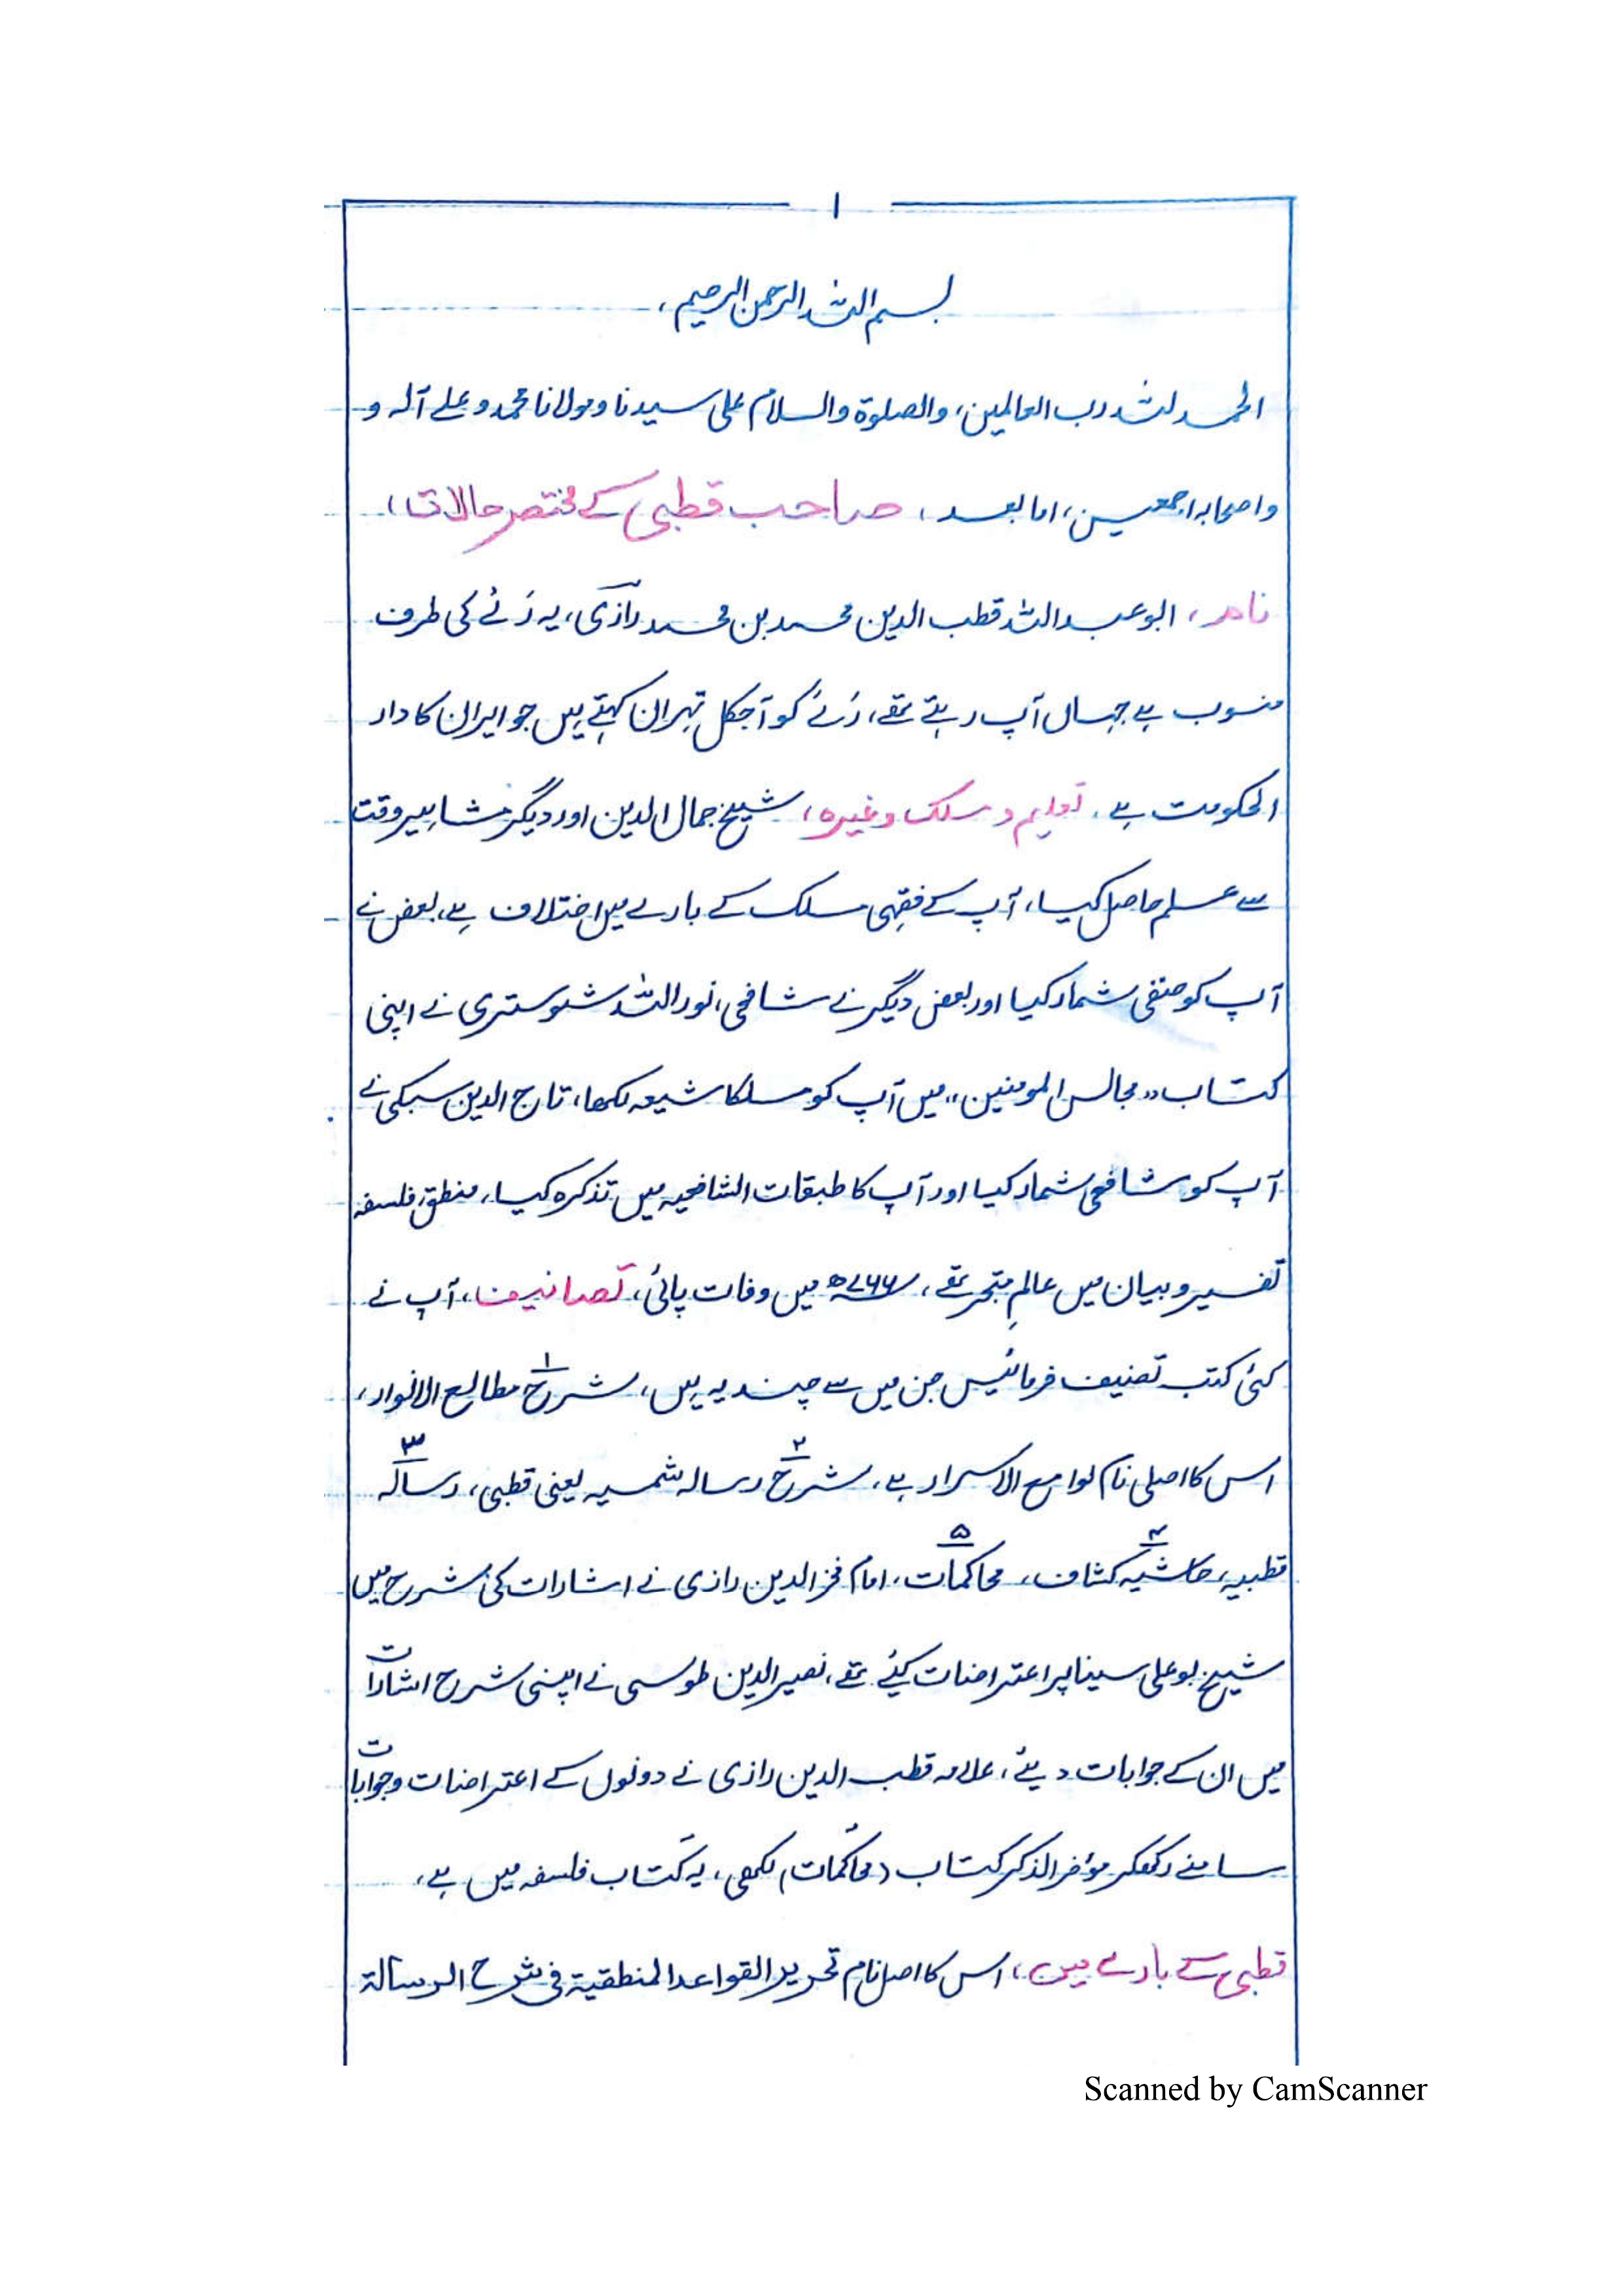 ۱
بسم اللہ الرحمن الرحیم،
الحمد للہ رب العالمین، والصلوۃ والسلام علی سیدنا ومولانا محمد وعلے آلہ و
واصحابہ اجمعین، اما بعد، صاحب قطبی کے مختصر حالات،
نام، ابوعبداللہ قطب الدین محمد بن محمد رازی، یہ رَئے کی طرف
منسوب ہے جہاں آپ رہتے تھے، رَئے کو آجکل تہران کہتے ہیں جو ایران کا دار
الحکومت ہے، تعلیم و مسلک وغیرہ، شیخ جمال الدین اور دیگر مشاہیر وقت
سے علم حاصل کیا، آپ کے فقہی مسلک کے بارے میں اختلاف ہے، بعض نے
آپ کو حنفی شمار کیا اور بعض دیگر نے شافعی، نور اللہ شوستری نے اپنی
کتاب ،،مجالس المومنین،، میں آپ کو مسلکا شیعہ لکھا، تاج الدین سبکی نے
آپ کو شافعی شمار کیا اور آپ کا طبقات الشافعیہ میں تذکرہ کیا، منطق، فلسفہ
تفسیر و بیان میں عالمِ متبحر تھے، ۷۶۶ھ میں وفات پائی، تصانیف، آپ نے
کئی کتب تصنیف فرمائیں جن میں سے چند یہ ہیں، ۱ شرح مطالع الانوار،
اس کا اصلی نام لوامع الاسرار ہے، ۲ شرح رسالہ شمسیہ یعنی قطبی، ۳ رسالہ
قطبیہ، ۴ حاشیہ کشاف، ۵ محاکمات، امام فخر الدین رازی نے اشارات کی شرح میں
شیخ بوعلی سینا پر اعتراضات کیئے تھے، نصیر الدین طوسی نے اپنی شرح اشارات
میں ان کے جوابات دیئے، علامہ قطب الدین رازی نے دونوں کے اعتراضات وجوابات
سامنے رکھکر مؤخر الذکر کتاب (محاکمات) لکھی، یہ کتاب فلسفہ میں ہے،
قطبی کے بارے میں، اس کا اصل نام تحریر القواعد المنطقیۃ فی شرح الرسالۃ
Scanned by CamScanner